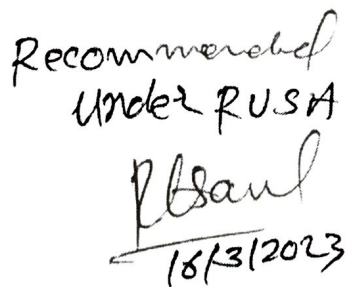 Recommended
under RUSA
16/3/2023